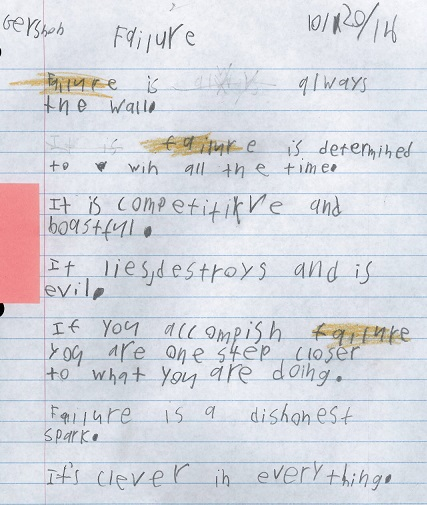 Gershon
10/20/16
Failure
Failure is always
the wall.
It is failure is determined
to win all the time.
It is competitikve and
boastful.
It lies,destroys and is
evil.
If you accompish failure
you are one step closer
to what you are doing.
Failure is a dishonest
spark.
It's clever in everything.